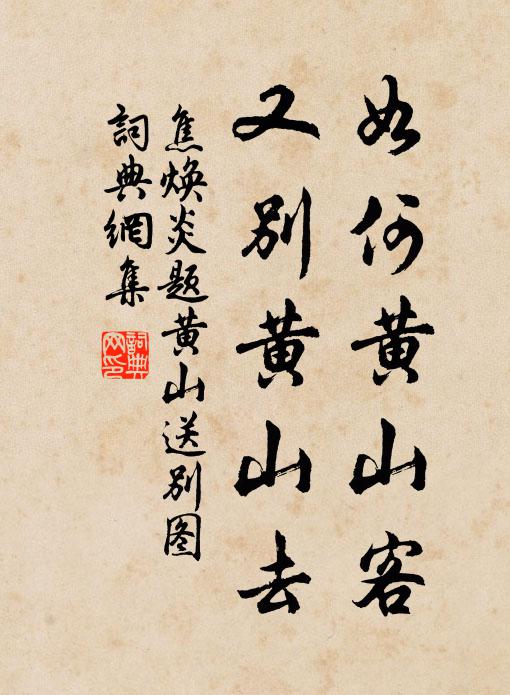 如何黄山客
又别黄山去
焦焕炎题黄山送别图
词典網集
詞典网印